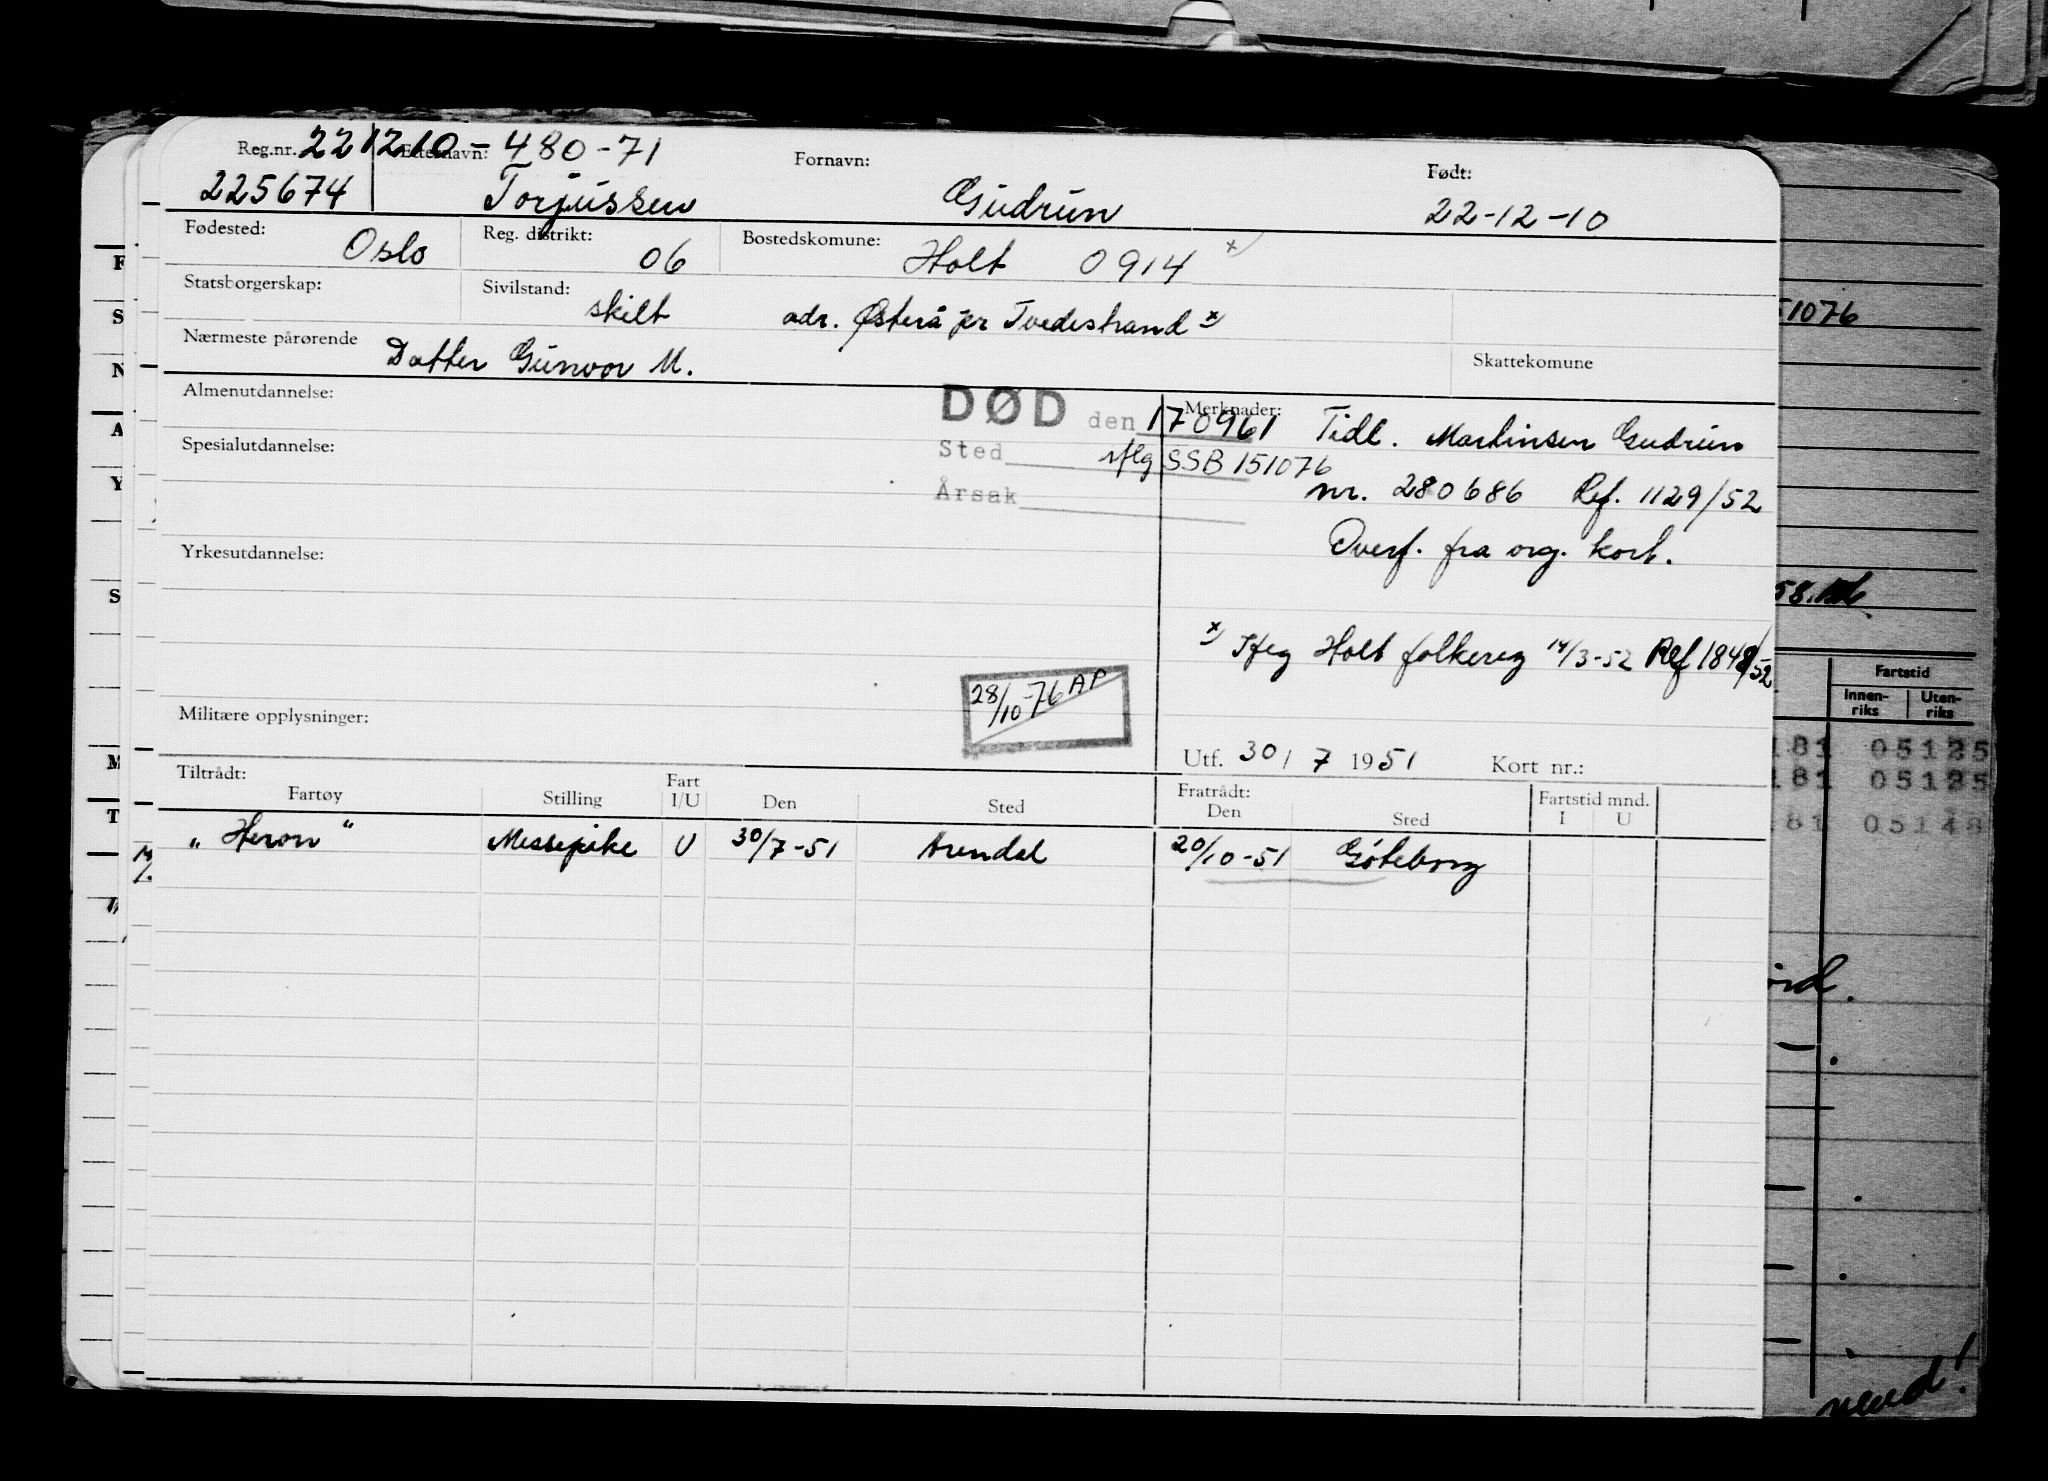 Reg.nr. 221210-480-71
Etternavn: Fornavn: Født:
225674 Torjussen Gudrun 22-12-10
Fødested: Oslo Reg. distrikt: 06 Bostedskomune: Holt 0914 x)
Statsborgerskap: Sivilstand: skilt adr. Østerå pr Tvedestrand x)
Nærmeste pårørende Datter Gunvor M. Skattekomune
Almenutdannelse: DØD den 170961 Merknader: Tidl. Martinsen Gudrun
Spesialutdannelse: Sted iflg SSB 151076
nr. 280686 Ref. 1129/52
Årsak
Yrkesutdannelse: Overf. fra org. kort.
x) Iflg Holt folkereg 14/3-52 Ref 1848/52
28/10-76 AP
Militære opplysninger:
Utf. 30/7 1951 Kort nr.:
Tiltrådt: Fratrådt:
Fartøy Stilling Fart I/U Den Sted Den Sted Fartstid mnd. I U
"Heron" Messepike U 30/7-51 Arendal 20/10-51 Göteborg
F
S
N
A
Y
S
M
T
M/
51076
58.
Fartstid
Innen-riks Uten-riks
181 05125
181 05125
181 05148
vend!